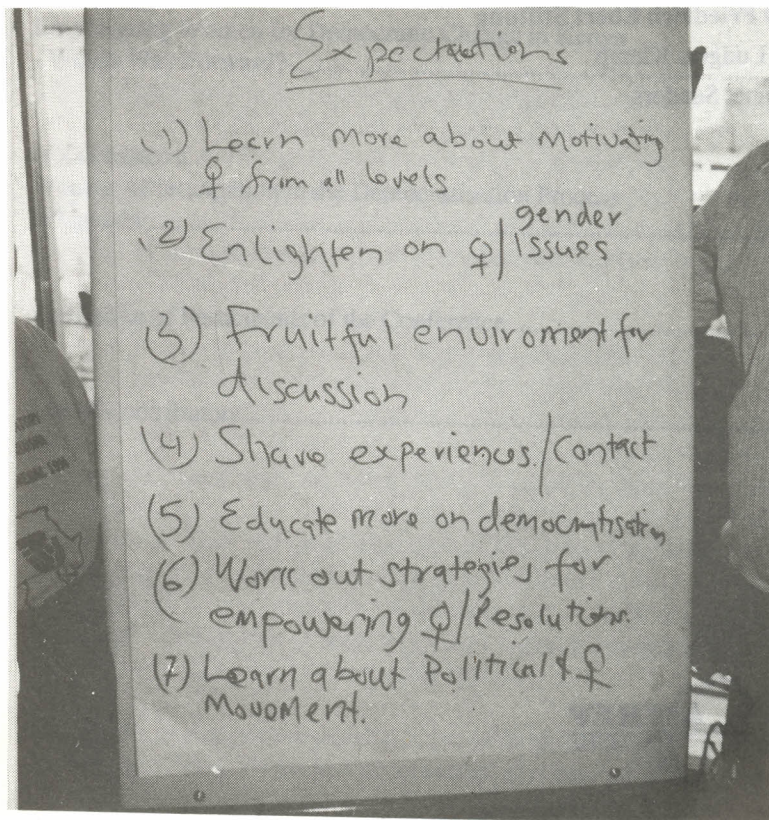 Expectations
(1) Learn more about Motivating
♀ from all levels
(2) Enlighten on ♀/gender Issues
(3) Fruitful enviroment for
discussion
(4) Share experiences./Contact
(5) Educate more on democratisation
(6) Work out strategies for
empowering ♀/Resolutions.
(7) Learn about Political & ♀
Movement.